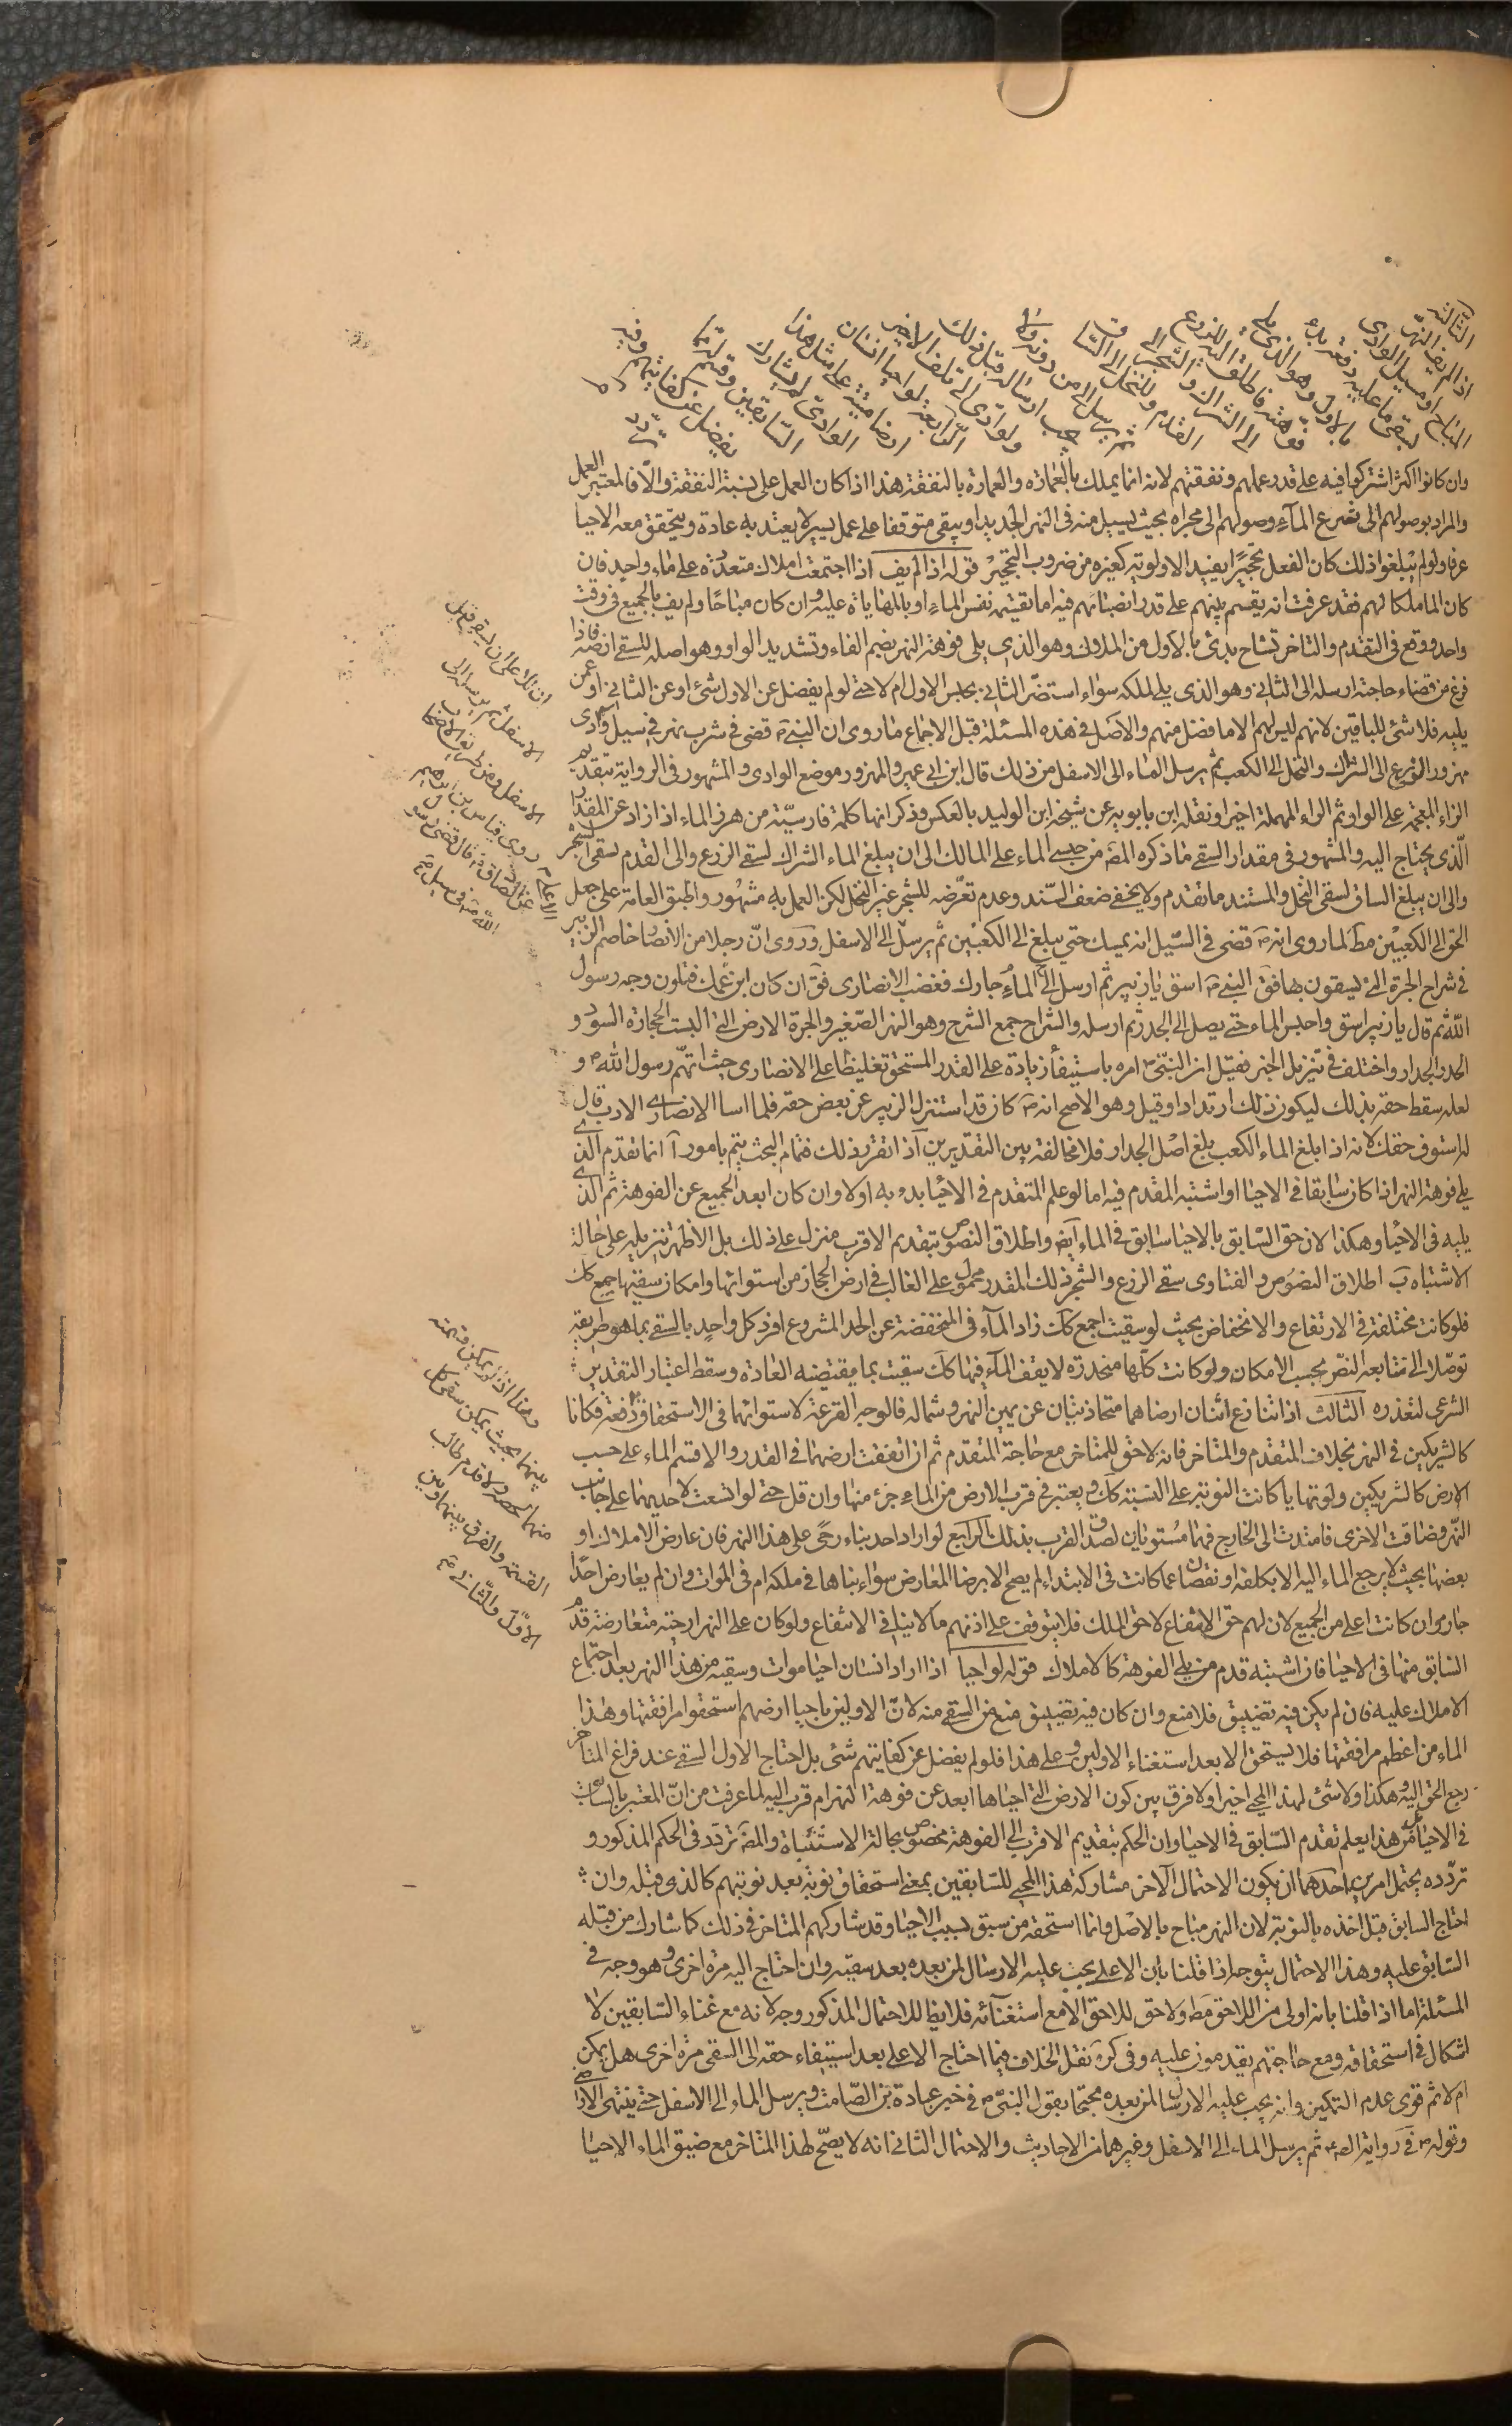 الثالثة
اذا لم يف النهر
المباح او مسيل الوادى
لسقى ما عليه دفعة بدء
بالاول وهو الذى يلى
فوهته فاطلق اليه للزرع
الى الشراك وللشجر الى
القدم وللنخل الى الساق
ثم يرسل الى من دونه ولا
يجب ارساله قبل ذلك
ولو ادى الى تلف الاخير
الرابعة لو احيا انسان
ارضا ميتة على مثل هذا
الوادى لم يشارك
السابقين وقسم له مما
يفضل عن كفايتهم وفيه
تردد
وان كانوا اكثر اشتركوا فيه على قدر عملهم ونفقتهم لانه انما يملك بالعمارة والعمارة بالنفقة هذا اذا كان العمل على نسبة النفقة والا فالمعتبر العمل
والمراد بوصولهم الى نفس الماء وصولهم الى مجراه بحيث يسيل منه فى النهر الجديد او يبقى متوقفا على عمل يسير لا يعتد به عادة ويتحقق معه الاحيا
عرفا ولو لم يبلغوا ذلك كان الفعل تحجيرا يفيد الاولوية كغيره من ضروب التحجير قوله اذا لم يف اذا اجتمعت املاك متعددة على ماء واحد فان
كان الما ملكا لهم فقد عرفت انه يقسم بينهم على قدر انصبائهم فيه اما بقسمة نفس الماء او بالمهاياة عليه وان كان مباحا ولم يف بالجميع فى وقت
واحد ووقع فى التقدم والتاخر تشاح بدئ بالاول من الملاك وهو الذى يلى فوهة النهر بضم الفاء وتشديد الواو وهو اصله للسقى ارضه فاذا
فرغ من قضاء حاجته ارسله الى الثانى وهو الذى يلى ملكه سواء استضر الثانى بحبس الاول ام لا حتى لو لم يفضل عن الاول شئ او عن الثانى او عمن
يليه فلا شئ للباقين لانهم ليس لهم الا ما فضل منهم والاصل فى هذه المسئلة قبل الاجماع ما روى ان النبى ص قضى فى شرب نهر فى سيل وادى
مهزور الزرع الى الشراك والنخل الى الكعب ثم يرسل الماء الى الاسفل من ذلك قال ابن ابى عمير والمهزور موضع الوادى والمشهور فى الرواية بتقديم
الزاء المعجمة على الواو ثم الراء المهملة اخيرا ونقله ابن بابويه عن شيخه ابن الوليد بالعكس وذكر انها كلمة فارسية من هرز الماء اذا زاد عن المقدار
الذى يحتاج اليه والمشهور فى مقدار السقى ما ذكره المص من حبس الماء على المالك الى ان يبلغ الماء الشراك لسقى الزرع والى القدم لسقى الشجر
والى ان يبلغ الساق لسقى النخل والمستند ما تقدم ولا يخفى ضعف السند وعدم تعرضه للشجر غير النخل لكن العمل به مشهور واطبق العامة على جعل
الحق الى الكعبين مط لما روى انه ص قضى فى السيل انه يمسك حتى يبلغ الى الكعبين ثم يرسل الى الاسفل وروى ان رجلا من الانصار خاصم الزبير
فى شراج الحرة التى يسقون بها فق النبى ص اسق يا زبير ثم ارسل الماء الى جارك فغضب الانصارى فق ان كان ابن عمك فتلون وجه رسول
الله ثم قال يا زبير اسق واحبس الماء حتى يصل الى الجدر ثم ارسله والشراج جمع الشرج وهو النهر الصغير والحرة الارض التى البست الحجارة السود و
الجدر الجدار واختلف فى تنزيل الخبر فقيل ان النبى ص امره باستيفاء زيادة على القدر المستحق تغليظا على الانصارى حيث اتهم رسول الله ص و
لعله سقط حقه بذلك ليكون ذلك ارتدادا وقيل وهو الاصح انه ص كان قد استنزل الزبير عن بعض حقه فلما اسا الانصارى الادب قال
له استوف حقك لانه اذا بلغ الماء الكعب بلغ اصل الجدار فلا مخالفة بين التقديرين اذا تقرر ذلك فتمام البحث يتم بامور ا انما تقدم الذى
يلى فوهة النهر اذا كان سابقا فى الاحيا او اشتبه المقدم فيه اما لو علم المتقدم فى الاحيا بدء به اولا وان كان ابعد الجميع عن الفوهة ثم الذى
يليه فى الاحيا وهكذا لان حق السابق بالاحيا سابق فى الماء ايض واطلاق النصوص بتقديم الاقرب منزل على ذلك بل الاظهر تنزيله على حالة
الاشتباه ب اطلاق النصوص والفتاوى سقى الزرع والشجر ذلك المقدر محمول على الغالب فى ارض الحجاز من استوائها وامكان سقيها جميع كك
فلو كانت مختلفة فى الارتفاع والانخفاض بحيث لو سقيت اجمع كك زاد الماء فى المنخفضة عن الحد المشروع افرد كل واحد بالسقى بما هو طريقه
توصلا الى متابعة النص بحسب الامكان ولو كانت كلها منحدرة لا يقف الماء فيها كك سقيت بما يقتضيه العادة وسقط اعتبار التقدير
الشرعى لتعذره الثالث اذا تنازع اثنان ارضاهما متحاذيتان عن يمين النهر وشماله فالوجه القرعة لاستوائهما فى الاستحقاق دفعة فكانا
كالشريكين فى النهر بخلاف المتقدم والمتاخر فانه لا حق للمتاخر مع حاجة المتقدم ثم ان اتفقت ارضهما فى القدر والا قسم الماء على حسب
الارض كالشريكين ولو تهايا كانت النوبة على النسبة كك ويعتبر فى قرب الارض من الماء جزء منها وان قل حتى لو اتسعت لاحديهما على جانب
النهر وضاقت الاخرى فامتدت الى الخارج فهما مستويان لصدق القرب بذلك الرابع لو اراد احد بناء رحى على هذا النهر فان عارض الاملاك او
بعضها بحيث لا يرجع الماء اليه الا بكلفة او نقصان عما كانت فى الابتداء لم يصح الا برضا المعارض سواء بناها فى ملكه ام فى الموات وان لم يعارض احدا
جاز وان كانت اعلى من الجميع لان لهم حق الانتفاع لا حق الملك فلا يتوقف على اذنهم ما لا ينافى الانتفاع ولو كان على النهر ارحية متعارضة قدم
السابق منها فى الاحيا فان اشتبه قدم من يلى الفوهة كالاملاك قوله لو احيا اذا اراد انسان احيا موات وسقيه من هذا النهر بعد اجتماع
الاملاك عليه فان لم يكن فيه تضييق فلا منع وان كان فيه تضييق منع من السقى منه لان الاولين باحيا ارضهم استحقوا مرافقتها وهذا
الماء من اعظم مرافقها فلا يستحق الا بعد استغناء الاولين وعلى هذا فلو لم يفضل عن كفايتهم شئ بل احتاج الاول السقى عند فراغ المتاخر
رجع الحق اليه وهكذا ولا شئ لهذا المحيى اخيرا ولا فرق بين كون الارض التى احياها ابعد عن فوهة النهر ام قرب اليه لما عرفت من ان المعتبر بالسابق
فى الاحيا من هذا يعلم تقدم السابق فى الاحيا وان الحكم بتقديم الاقرب الى الفوهة مخصوص بحالة الاشتباه والمص تردد فى الحكم المذكور و
تردده يحتمل امرين احدهما ان يكون الاحتمال الاخر مشاركة هذا المحيى للسابقين بمعنى استحقاق نوبة بعد نوبتهم كالذى قبله وان
احتاج السابق قبل اخذه بالنوبة لان النهر مباح بالاصل وانما استحقه من سبق بسبب الاحيا وقد شاركهم المتاخر فى ذلك كما شارك من قبله
السابق عليه وهذا الاحتمال يتوجه اذا قلنا بان الاعلى يجب عليه الارسال لمن بعده بعد سقيه وان احتاج اليه مرة اخرى وهو وجه فى
المسئلة اما اذا قلنا بانه اولى من اللاحق مط ولا حق للاحق الا مع استغنائه فلا يظهر للاحتمال المذكور وجه لانه مع غناء السابقين لا
اشكال فى استحقاقه ومع حاجتهم يقدمون عليه وفى كره نقل الخلاف فيما احتاج الاعلى بعد استيفاء حقه الى السقى مرة اخرى هل يمكن
ام لا ثم قوى عدم التمكين وانه يجب عليه الارسال لمن بعده محتجا بقول النبى ص فى خبر عبادة بن الصامت ويرسل الماء الى الاسفل حتى ينتهى الاراضى
وقوله ص فى رواية الص ثم يرسل الماء الى الاسفل وغيرهما من الاحاديث والاحتمال الثانى انه لا يصح لهذا المتاخر مع ضيق الماء الاحيا
الاسفل ثم يرسل الى
عن الصادق قال قضى رسول
الله ص فى سيل
وهذا اذا لم يمكن قسمته
بينهما بحيث يمكن سقى كل
القسمة والفرق بينهما وبين
الاول والثانى